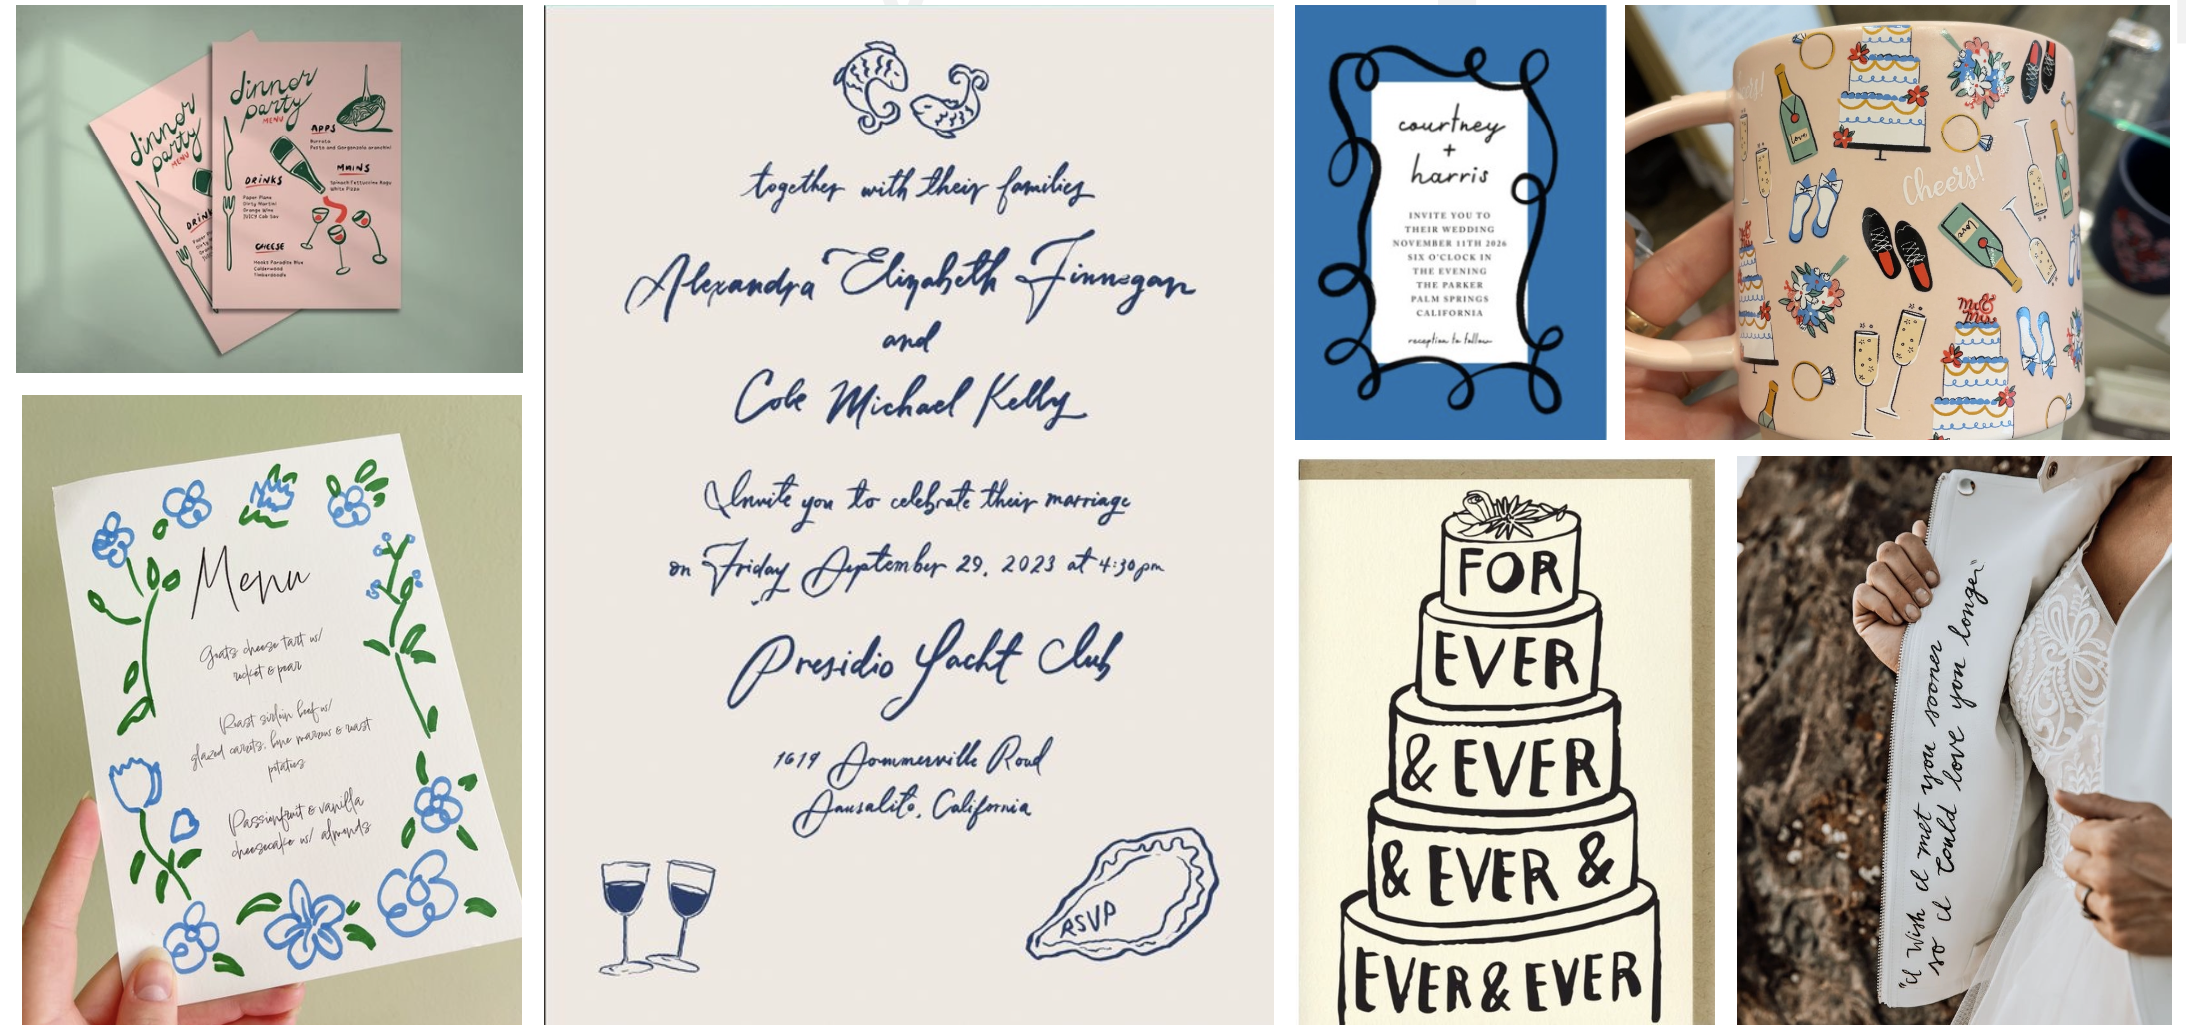 dinner
party
MENU
APPS
Burrata
Pesto and Gorgonzola arancini
MAINS
Spinach Fettuccine Ragu
White Pizza
DRINKS
Paper Plane
Dirty Martini
Orange Wine
JUICY Cab Sav
CHEESE
Hooks Paradise Blue
Calderwood
Timberdoodle
dinner
party
MENU
DRINK
Menu
Goats cheese tart w/
rocket & pear
Roast sirloin beef w/
glazed carrots, bone marrow & roast
potatoes
Passionfruit & vanilla
cheesecake w/ almonds
together with their families
Alexandra Elizabeth Finnegan
and
Cole Michael Kelly
Invite you to celebrate their marriage
on Friday September 29, 2023 at 4:30pm
Presidio Yacht Club
1679 Sommerville Road
Sausalito, California
RSVP
courtney
+
harris
INVITE YOU TO
THEIR WEDDING
NOVEMBER 11TH 2026
SIX O'CLOCK IN
THE EVENING
THE PARKER
PALM SPRINGS
CALIFORNIA
reception to follow
Cheers!
Love
Love
Mr &
Mrs
FOR
EVER
& EVER
& EVER &
EVER & EVER
"I wish I met you sooner
so I could love you longer"